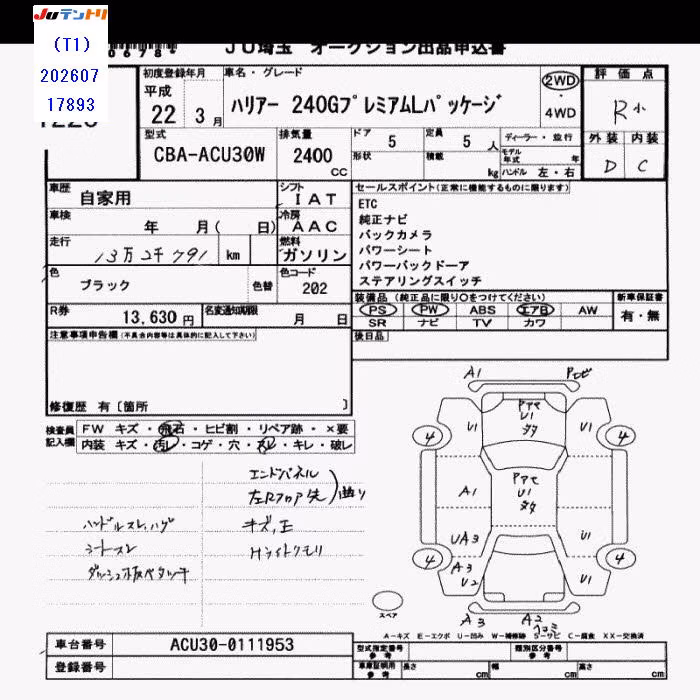 Juテントリ
(T1)
202607
17893
JU埼玉 オークション出品申込書
初度登録年月
平成
22 3月
車名・グレード
ハリアー 240GプレミアムLパッケージ
2WD
4WD
評価点
R小
外装 内装
D C
型式
CBA-ACU30W
排気量
2400
CC
ドア 5
定員 5 人
形状
積載
kg
ディーラー・並行
モデル年式 年
ハンドル 左・右
車歴
自家用
シフト
IAT
車検
年 月( 日)
冷房
AAC
走行
13万2千791 km
燃料
ガソリン
色
ブラック
色替
色コード
202
R券
13,630円
名変通知期限
月 日
セールスポイント(正常に機能するものに限ります)
ETC
純正ナビ
バックカメラ
パワーシート
パワーバックドーア
ステアリングスイッチ
装備品 (純正品に限り○をつけてください)
PS PW ABS エアB AW
SR ナビ TV カワ
新車保証書
有・無
後日品
注意事項申告欄(不具合内容等は具体的に記入して下さい)
修復歴 有〔箇所 〕
検査員
記入欄
FW キズ・飛石・ヒビ割・リペア跡・×要
内装 キズ・汚レ・コゲ・穴・スレ・キレ・破レ
エンドパネル
左Rフロア先
曲り
ハンドルスレ,ハゲ
シートスレ
キズ,凹
Hライトクモリ
A1
U1
U1
4
4
U1
A1
UA3
A3
U2
U1
U1
4
4
A3
A2
スペア
A-キズ E-エクボ U-凹み W-補修跡 S-サビ C-腐食 XX-交換済
車台番号
ACU30-0111953
登録番号
型式指定番号
参考
類別区分番号
参考
車庫証明用
参考
長さ cm
幅 cm
高さ cm